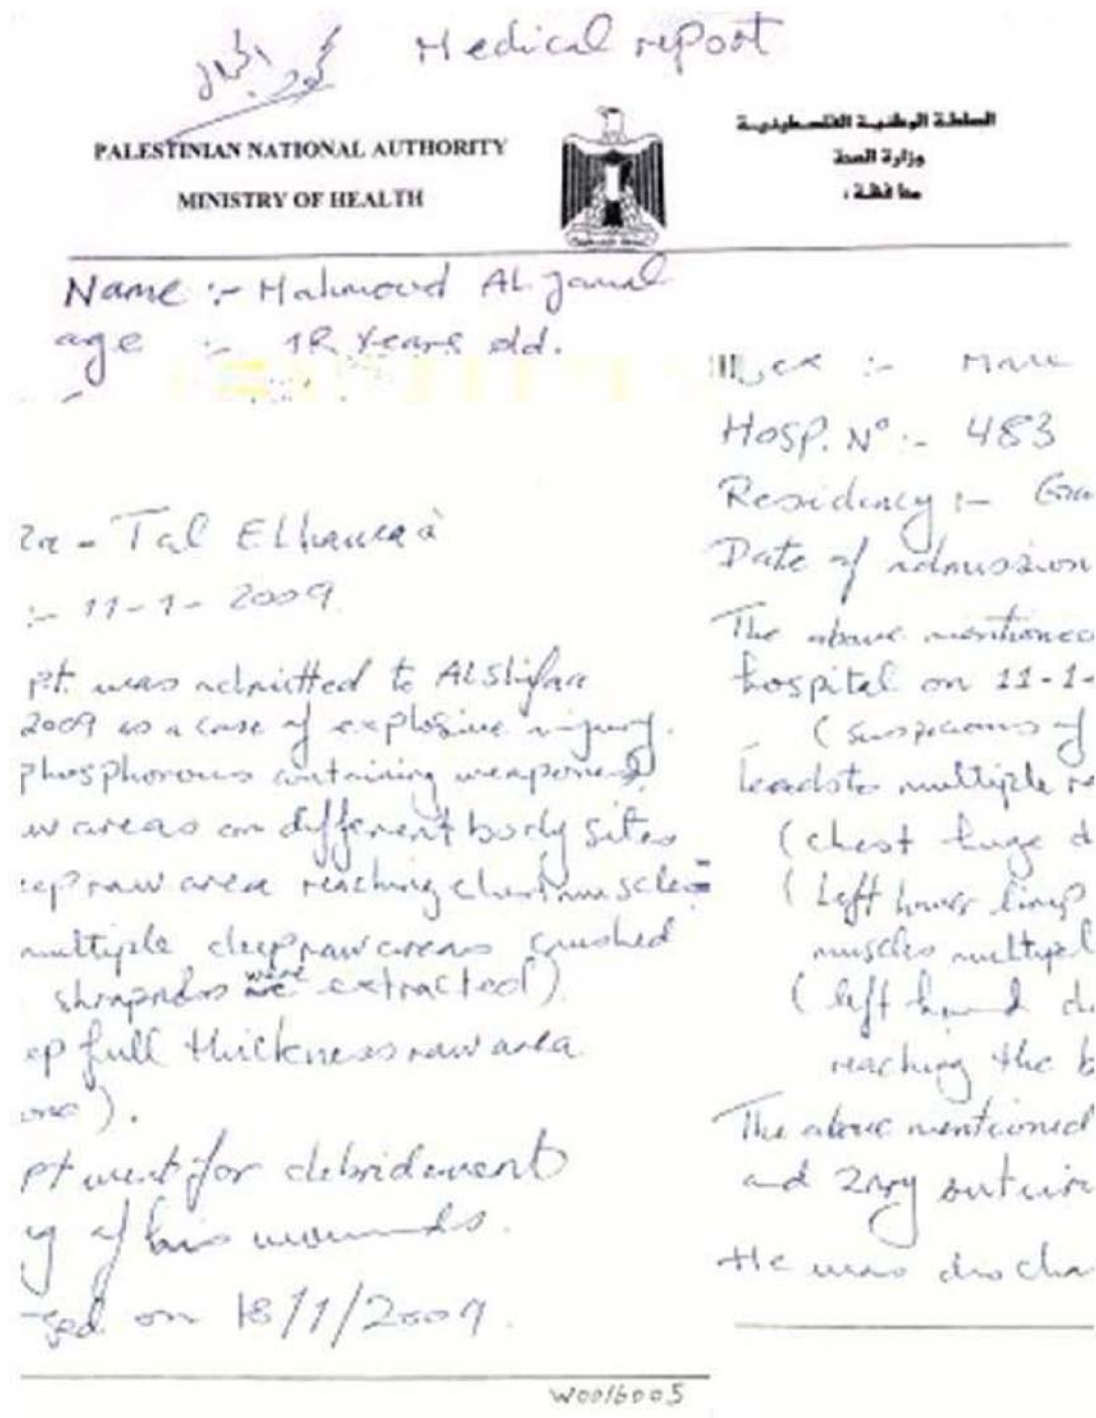 Medical report
محمود الجمال
PALESTINIAN NATIONAL AUTHORITY
MINISTRY OF HEALTH
السلطة الوطنية الفلسطينية
وزارة الصحة
محافظة :
Name :- Mahmoud Al Jamal
age :- 18 years old.
za - Tal Elhawa
:- 11-1-2009
pt. was admitted to AlShifaa
2009 as a case of explosive injury.
phosphorous containing weapones)
aw areas on different body sites
eep raw area reaching chest muscles
multiple deep raw areas crushed
shrapnels were extracted)
ep full thickness raw area
one).
pt went for debridement
g of his wounds.
ged on 18/1/2009.
W0016005
sex :- Male
Hosp. N° :- 483
Residency :- Ga
Date of admission
The above mentioned
hospital on 11-1-
(suspicions of
leads to multiple r
(chest huge d
(Left lower limp
muscles multipel
(left hand de
reaching the b
The above mentioned
and 2nry suturin
He was discha